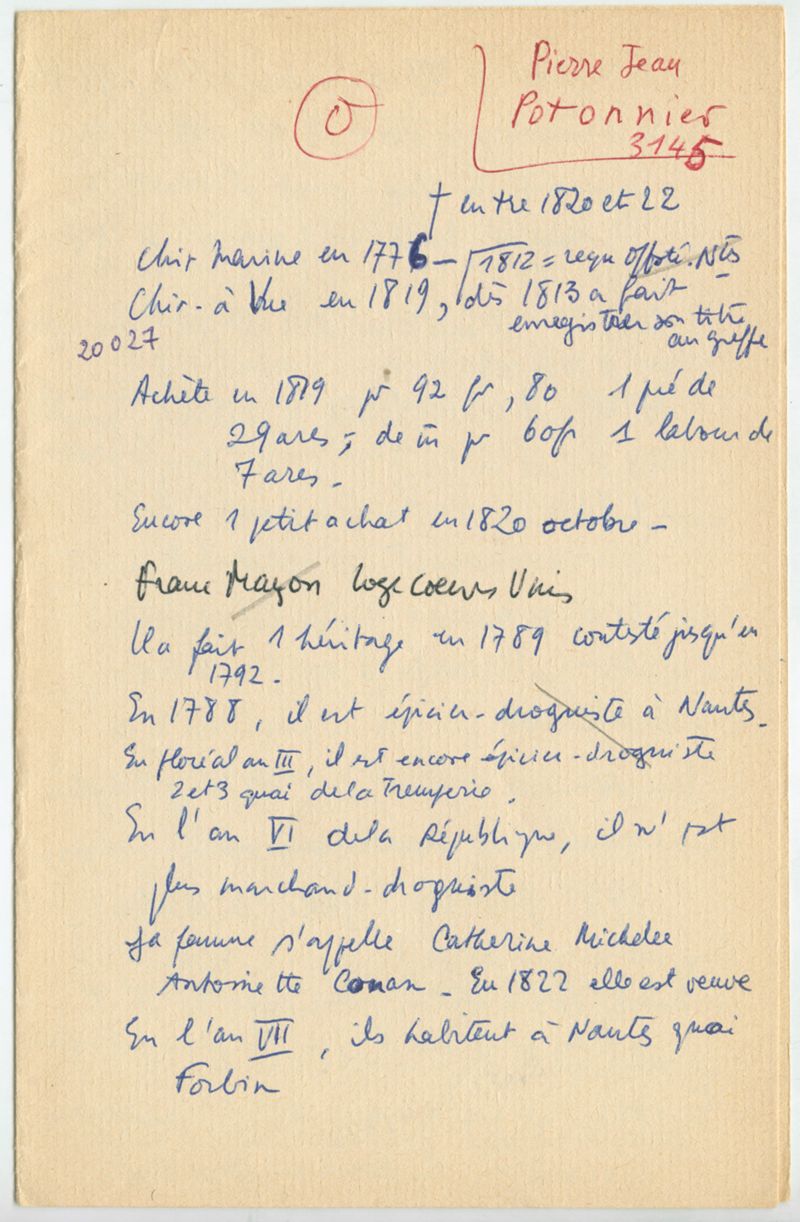 O
Pierre Jean
Potonnier
3145
† entre 1820 et 22
Chir Marine en 1776 – 1812 = reçu Offté. Ntes
Chir - à Vue en 1819, dès 1813 a fait
enregistrer son titre
au greffe
20027
Achète en 1819 pr 92 fr, 80 1 pré de
29 ares ; de m̄ pr 60 fr 1 labour de
7 ares -
Encore 1 petit achat en 1820 octobre -
Franc Maçon Loge Coeurs Unis
Il a fait 1 héritage en 1789 contesté jusqu'en
1792 -
En 1788, il est épicier - droguiste à Nantes -
En floréal an III, il est encore épicier - droguiste
2 et 3 quai de la Tremperie.
En l'an VI de la République, il n'est
plus marchand - droguiste
Sa femme s'appelle Catherine Michelle
Antoinette Conan - En 1822 elle est veuve
En l'an VII, ils habitent à Nantes quai
Forbin